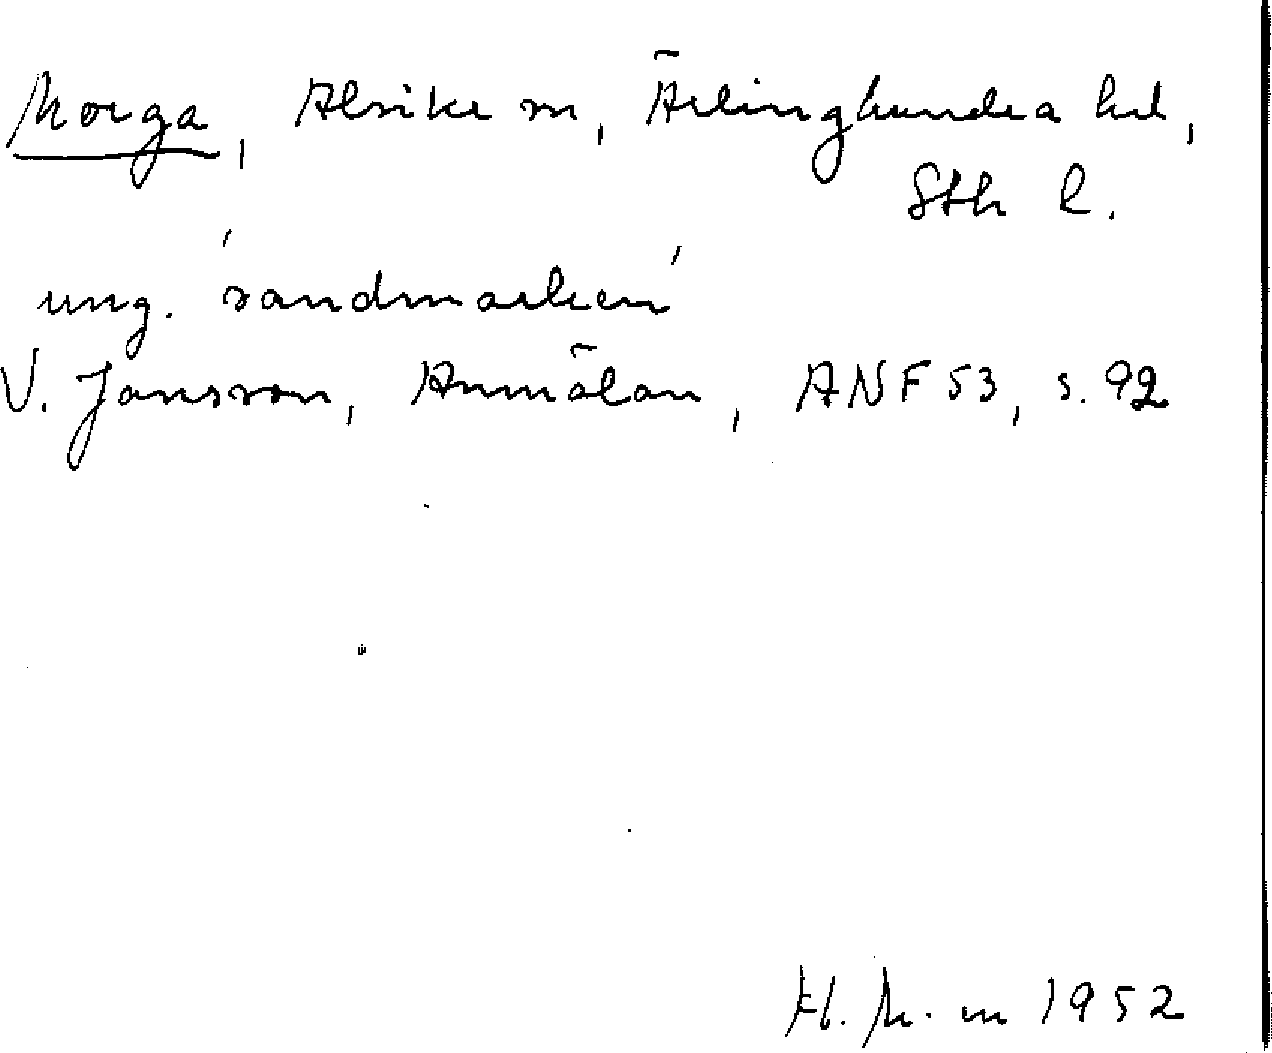 Morga, Alsike sn, Ärlinghundra hd,
Sth l.
ung. 'sandmarken'
V. Jansson, Anmälan, ANF 53, s. 92
1952